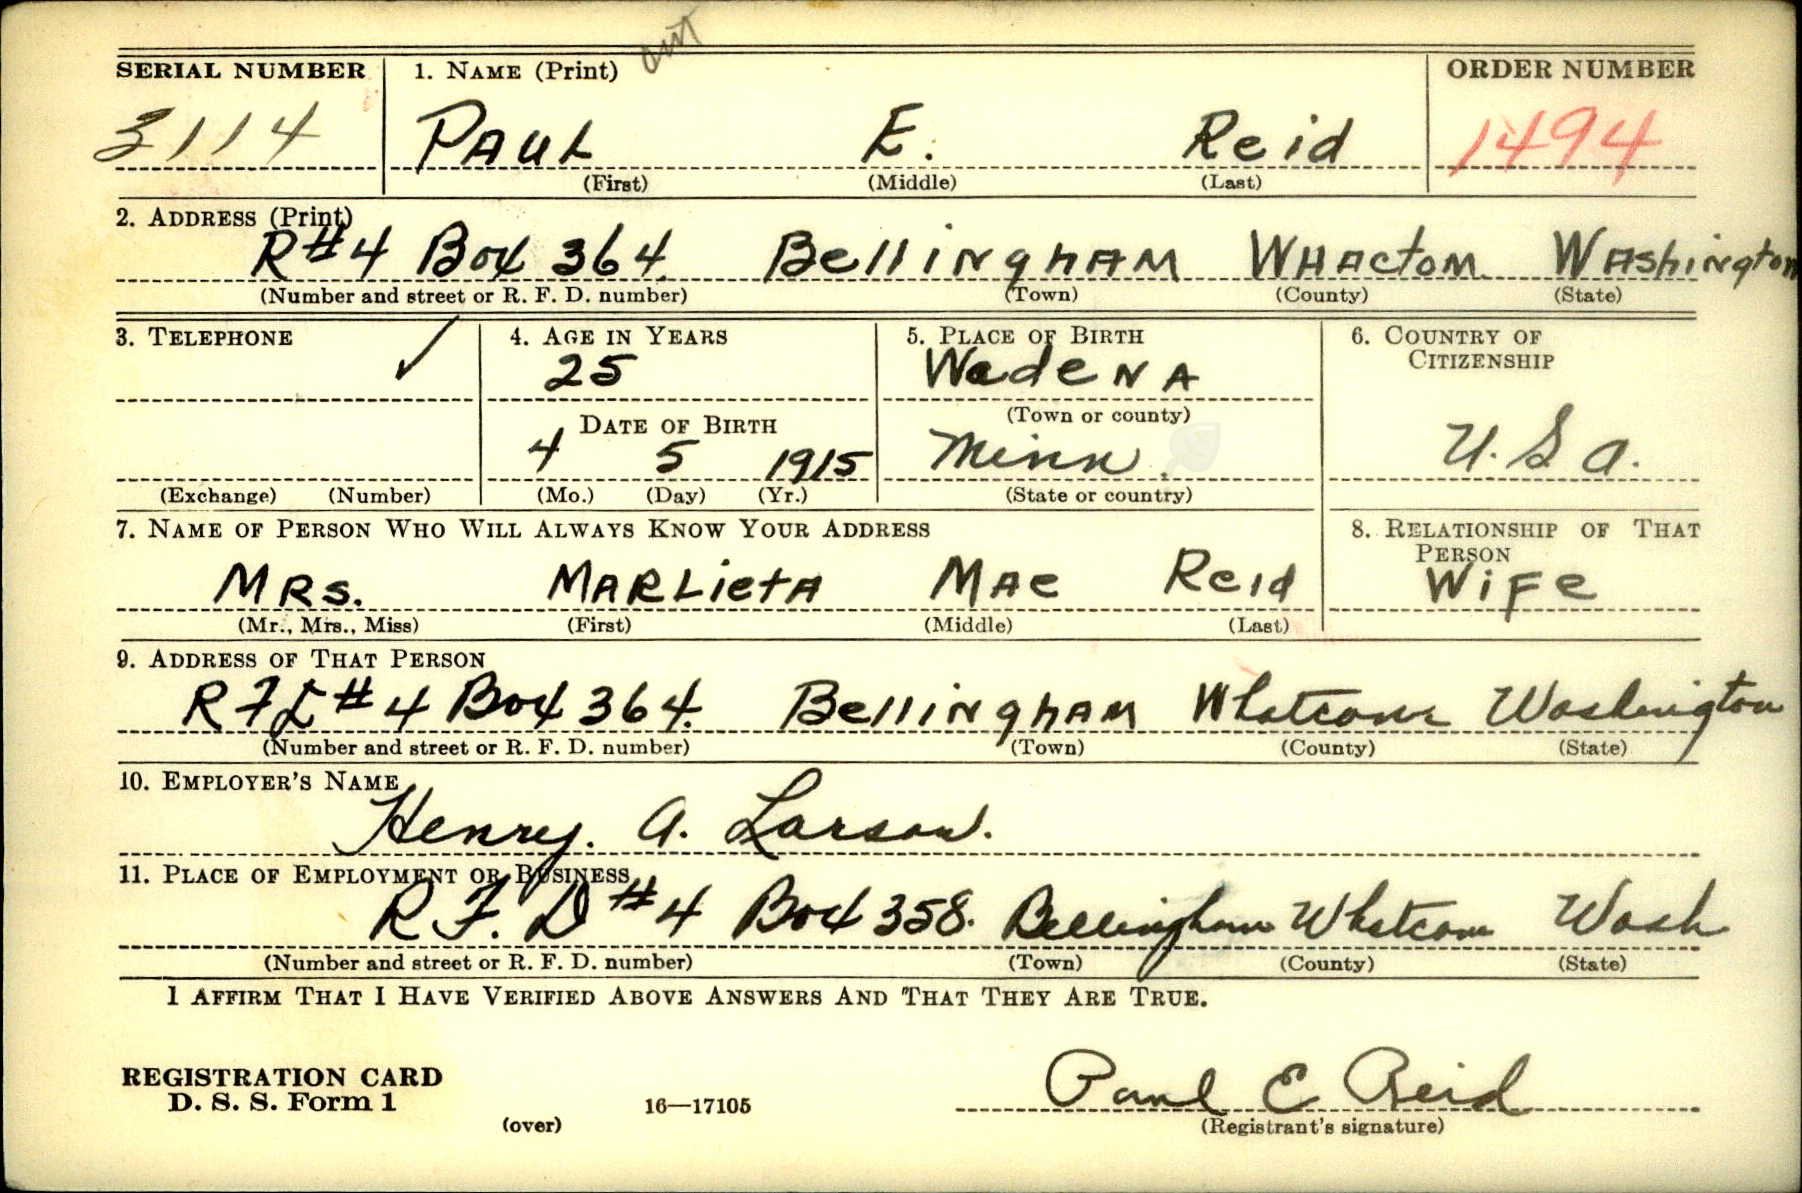 cut
SERIAL NUMBER 1. NAME (Print) ORDER NUMBER
3114 PAUL E. Reid 1494
(First) (Middle) (Last)
2. ADDRESS (Print)
R#4 Box 364. BellingHAM WHACTOM WAshington
(Number and street or R. F. D. number) (Town) (County) (State)
3. TELEPHONE 4. AGE IN YEARS 5. PLACE OF BIRTH 6. COUNTRY OF
CITIZENSHIP
✓ 25 WadeNA
DATE OF BIRTH (Town or county)
4 5 1915 Minn. U.S a.
(Exchange) (Number) (Mo.) (Day) (Yr.) (State or country)
7. NAME OF PERSON WHO WILL ALWAYS KNOW YOUR ADDRESS 8. RELATIONSHIP OF THAT
PERSON
MRs. MARLietA MAe Reid WiFe
(Mr., Mrs., Miss) (First) (Middle) (Last)
9. ADDRESS OF THAT PERSON
R F D # 4 Box 364. BellingHAM Whatcom Washington
(Number and street or R. F. D. number) (Town) (County) (State)
10. EMPLOYER'S NAME
Henry. A. Larson.
11. PLACE OF EMPLOYMENT OR BUSINESS
R F. D #4 Box 358. Bellingham Whatcom Wash
(Number and street or R. F. D. number) (Town) (County) (State)
I AFFIRM THAT I HAVE VERIFIED ABOVE ANSWERS AND THAT THEY ARE TRUE.
REGISTRATION CARD
D. S. S. Form 1 16—17105 Paul E Reid
(over) (Registrant's signature)